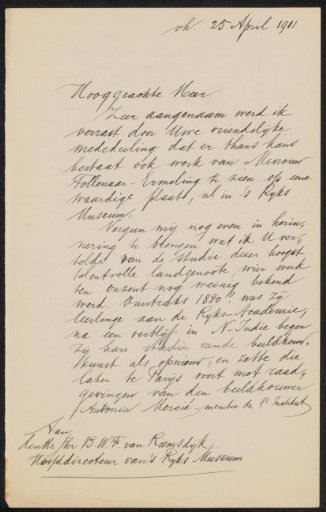 oh 25 April 1911
Hooggeachte Heer
Zeer aangenaam werd ik
verrast door Uwe vriendelyke
mededeeling dat er thans kans
bestaat ook werk van Mevrouw
Follenaar-Ermeling te zien op eene
waardige plaats, nl in 's Ryks
Museum.
Vergun my nog even in herin-
nering te brengen wat ik U ver-
telde van de studie dezer hoogst
talentvolle landgenoote, wier werk
ten onzent nog weinig bekend
werd. Omstreeks 1880? was zy
leerlinge aan de Ryks-Academie,
na een verblyf in N-Indie begon
zy hare studie van de beeldhouw-
kunst als opnieuw, en zette die
later te Parys voort met raad-
gevingen van den beeldhouwer
Antonin Mercié, membre de l'Institut
Aan
den Hr Jhr B. W. F. van Riemsdyk,
Hoofddirecteur van 's Ryks Museum